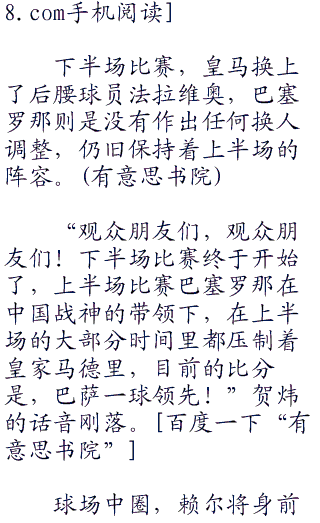 8.com手机阅读]
下半场比赛，皇马换上
了后腰球员法拉维奥，巴塞
罗那则是没有作出任何换人
调整，仍旧保持着上半场的
阵容。(有意思书院)
“观众朋友们，观众朋
友们！下半场比赛终于开始
了，上半场比赛巴塞罗那在
中国战神的带领下，在上半
场的大部分时间里都压制着
皇家马德里，目前的比分
是，巴萨一球领先！”贺炜
的话音刚落。[百度一下“有
意思书院”]
球场中圈，赖尔将身前